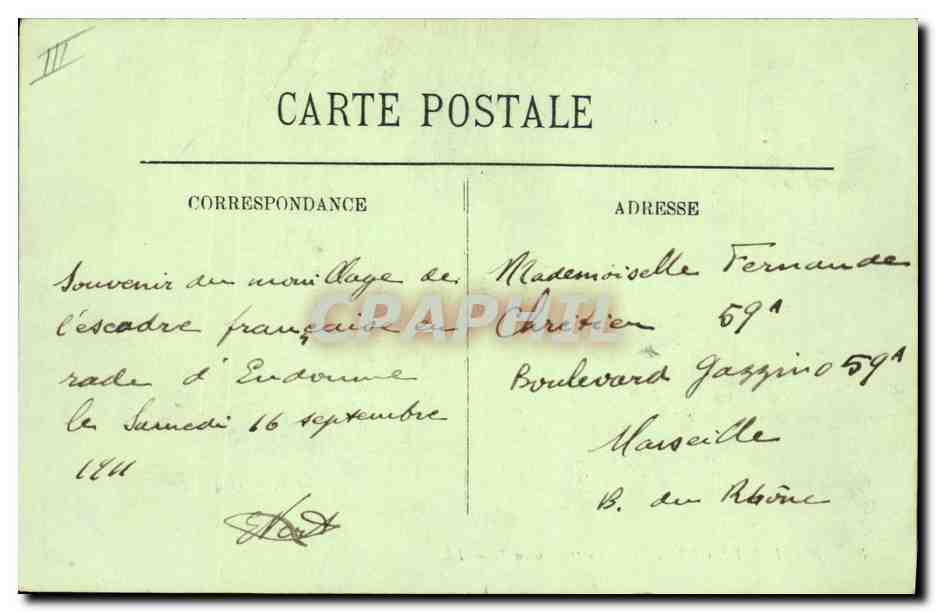 III
CARTE POSTALE
CORRESPONDANCE
Souvenir du mouillage de
l'escadre française en
rade d'Endoume
le Samedi 16 septembre
1911
ADRESSE
Mademoiselle Fernande
Chrétien 59A
Boulevard Gazzino 59A
Marseille
B. du Rhône
CPAPHIL